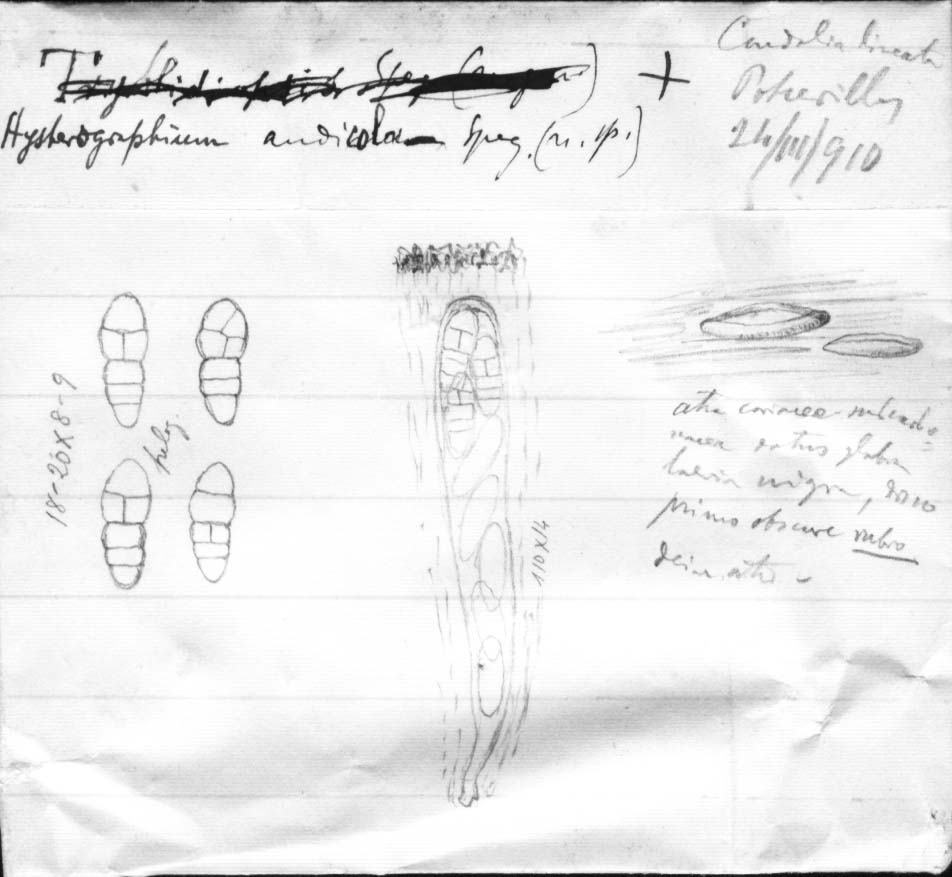 Hysterographium andicola Speg. (n. sp.)
+
Condalia lineata
Potrerillos
24/III/910
18-20X8-9
110X14
atra coriacea-subcarbo=
nacea extus glabra
laevia nigra, disco
primo obscure rubro
dein atro